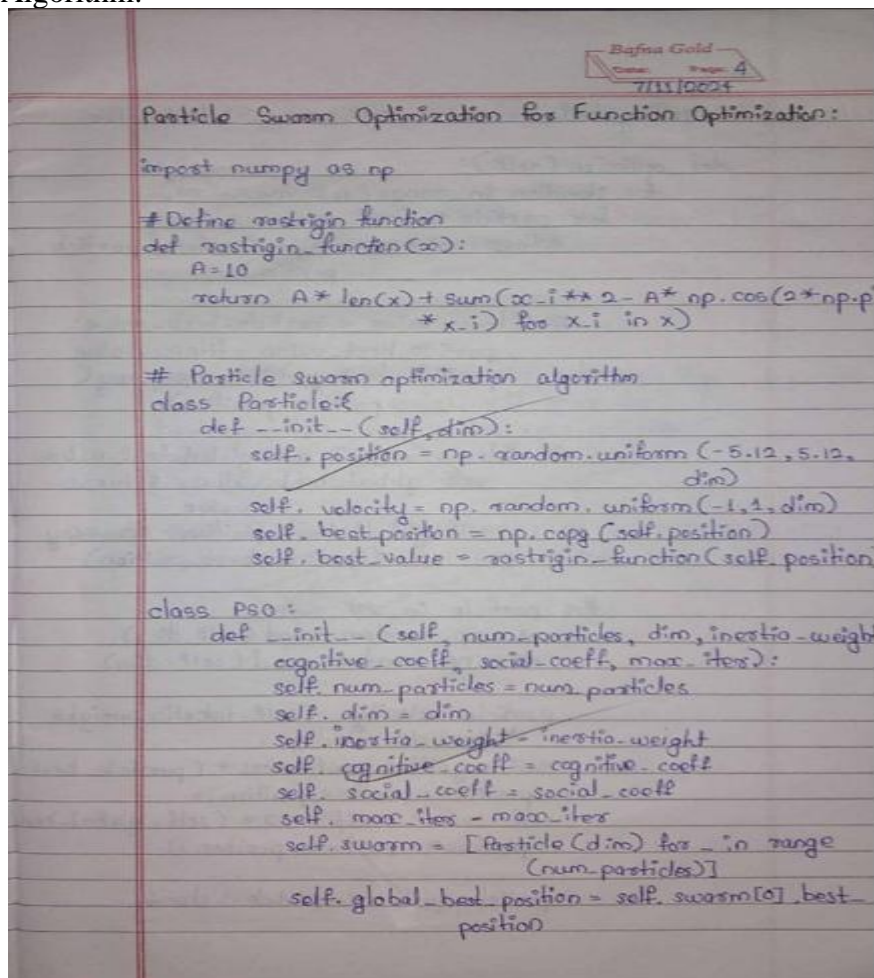 Algorithm:
Bafna Gold
Date: Page: 4
7/11/2024
Particle Swarm Optimization for Function Optimization:
import numpy as np
# Define rastrigin function
def rastrigin_function(x):
A=10
return A* len(x)+ sum(x_i**2- A* np.cos(2*np.p
* x_i) for x_i in x)
# Particle swarm optimization algorithm
class Particle:{
def __init__(self, dim):
self.position = np.random.uniform(-5.12, 5.12,
dim)
self.velocity = np.random.uniform(-1,1,dim)
self.best_position = np.copy(self.position)
self.best_value = rastrigin_function(self.position
class PSO:
def __init__(self, num_particles, dim, inertia_weight
cognitive_coeff, social_coeff, max_iter):
self.num_particles = num_particles
self.dim = dim
self.inertia_weight = inertia_weight
self.cognitive_coeff = cognitive_coeff
self.social_coeff = social_coeff
self.max_iter = max_iter
self.swarm = [Particle(dim) for _ in range
(num_particles)]
self.global_best_position = self.swarm[0].best_
position